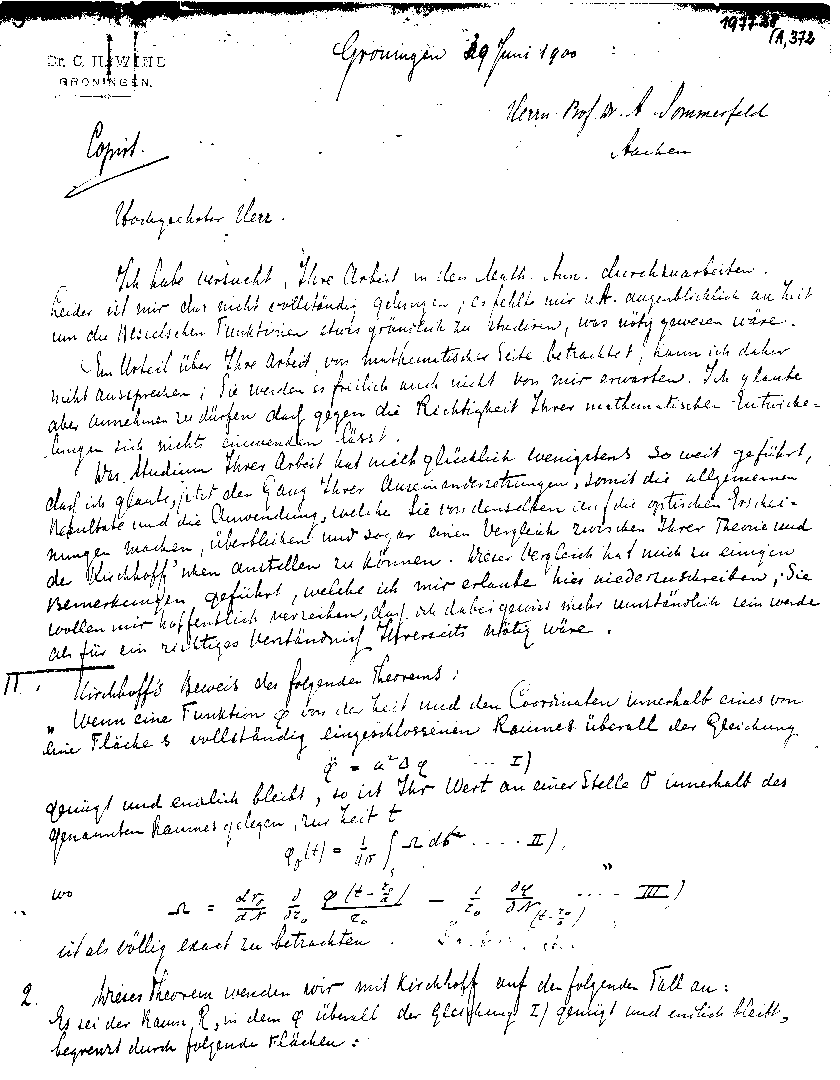 1977-28
(A,372
Dr. C. H. WIND
GRONINGEN.
Groningen 29 Juni 1900
Herrn Prof. Dr. A. Sommerfeld
Aachen
Copirt.
Hochgeehrter Herr.
Ich habe versucht, Ihre Arbeit in den Math. Ann. durchzuarbeiten.
Leider ist mir das nicht vollständig gelungen; es fehlte mir u.A. augenblicklich an Zeit
um die Besselschen Funktionen etwas gründlich zu studiren, was nötig gewesen wäre.
Ein Urteil über Ihre Arbeit, von mathematischer Seite betrachtet, kann ich daher
nicht aussprechen; Sie werden es freilich auch nicht von mir erwarten. Ich glaube
aber annehmen zu dürfen dass gegen die Richtigkeit Ihrer mathematischen Entwicke-
lungen sich nichts einwenden lässt.
Das Studium Ihrer Arbeit hat mich glücklich wenigstens so weit geführt,
dass ich glaube, jetzt den Gang Ihrer Auseinandersetzungen, somit die allgemeinen
Resultate und die Anwendung, welche Sie von denselben auf die optischen Erschei-
nungen machen, überblicken und sogar einen Vergleich zwischen Ihrer Theorie und
der Kirchhoff'schen anstellen zu können. Dieser Vergleich hat mich zu einigen
Bemerkungen geführt, welche ich mir erlaube hier niederzuschreiben; Sie
wollen mir hoffentlich verzeihen, dass ich dabei gewiss mehr umständlich sein werde
als für ein richtiges Verständniss Ihrerseits nötig wäre.
Kirchhoff's Beweis des folgenden Theorems:
"Wenn eine Funktion φ von der Zeit und den Coordinaten innerhalb eines von
eine Fläche s vollständig eingeschlossenen Raumes überall der Gleichung
φ̈ = a² Δ φ ... I)
genügt und endlich bleibt, so ist Ihr Wert an einer Stelle O innerhalb des
genannten Raumes gelegen, zur Zeit t
φ₀(t) = 1/4π ∫ₛ Ω ds .... II),
wo
Ω = dr₀/dN ∂/∂r₀ φ(t - r₀/a)/r₀ - 1/r₀ ∂φ/∂N (t - r₀/a) .... III) "
ist als völlig exact zu betrachten.
2. Dieses Theorem wenden wir mit Kirchhoff auf den folgenden Fall an:
Es sei der Raum R, in dem φ überall der Gleichung I) genügt und endlich bleibt,
begrenzt durch folgende Flächen: